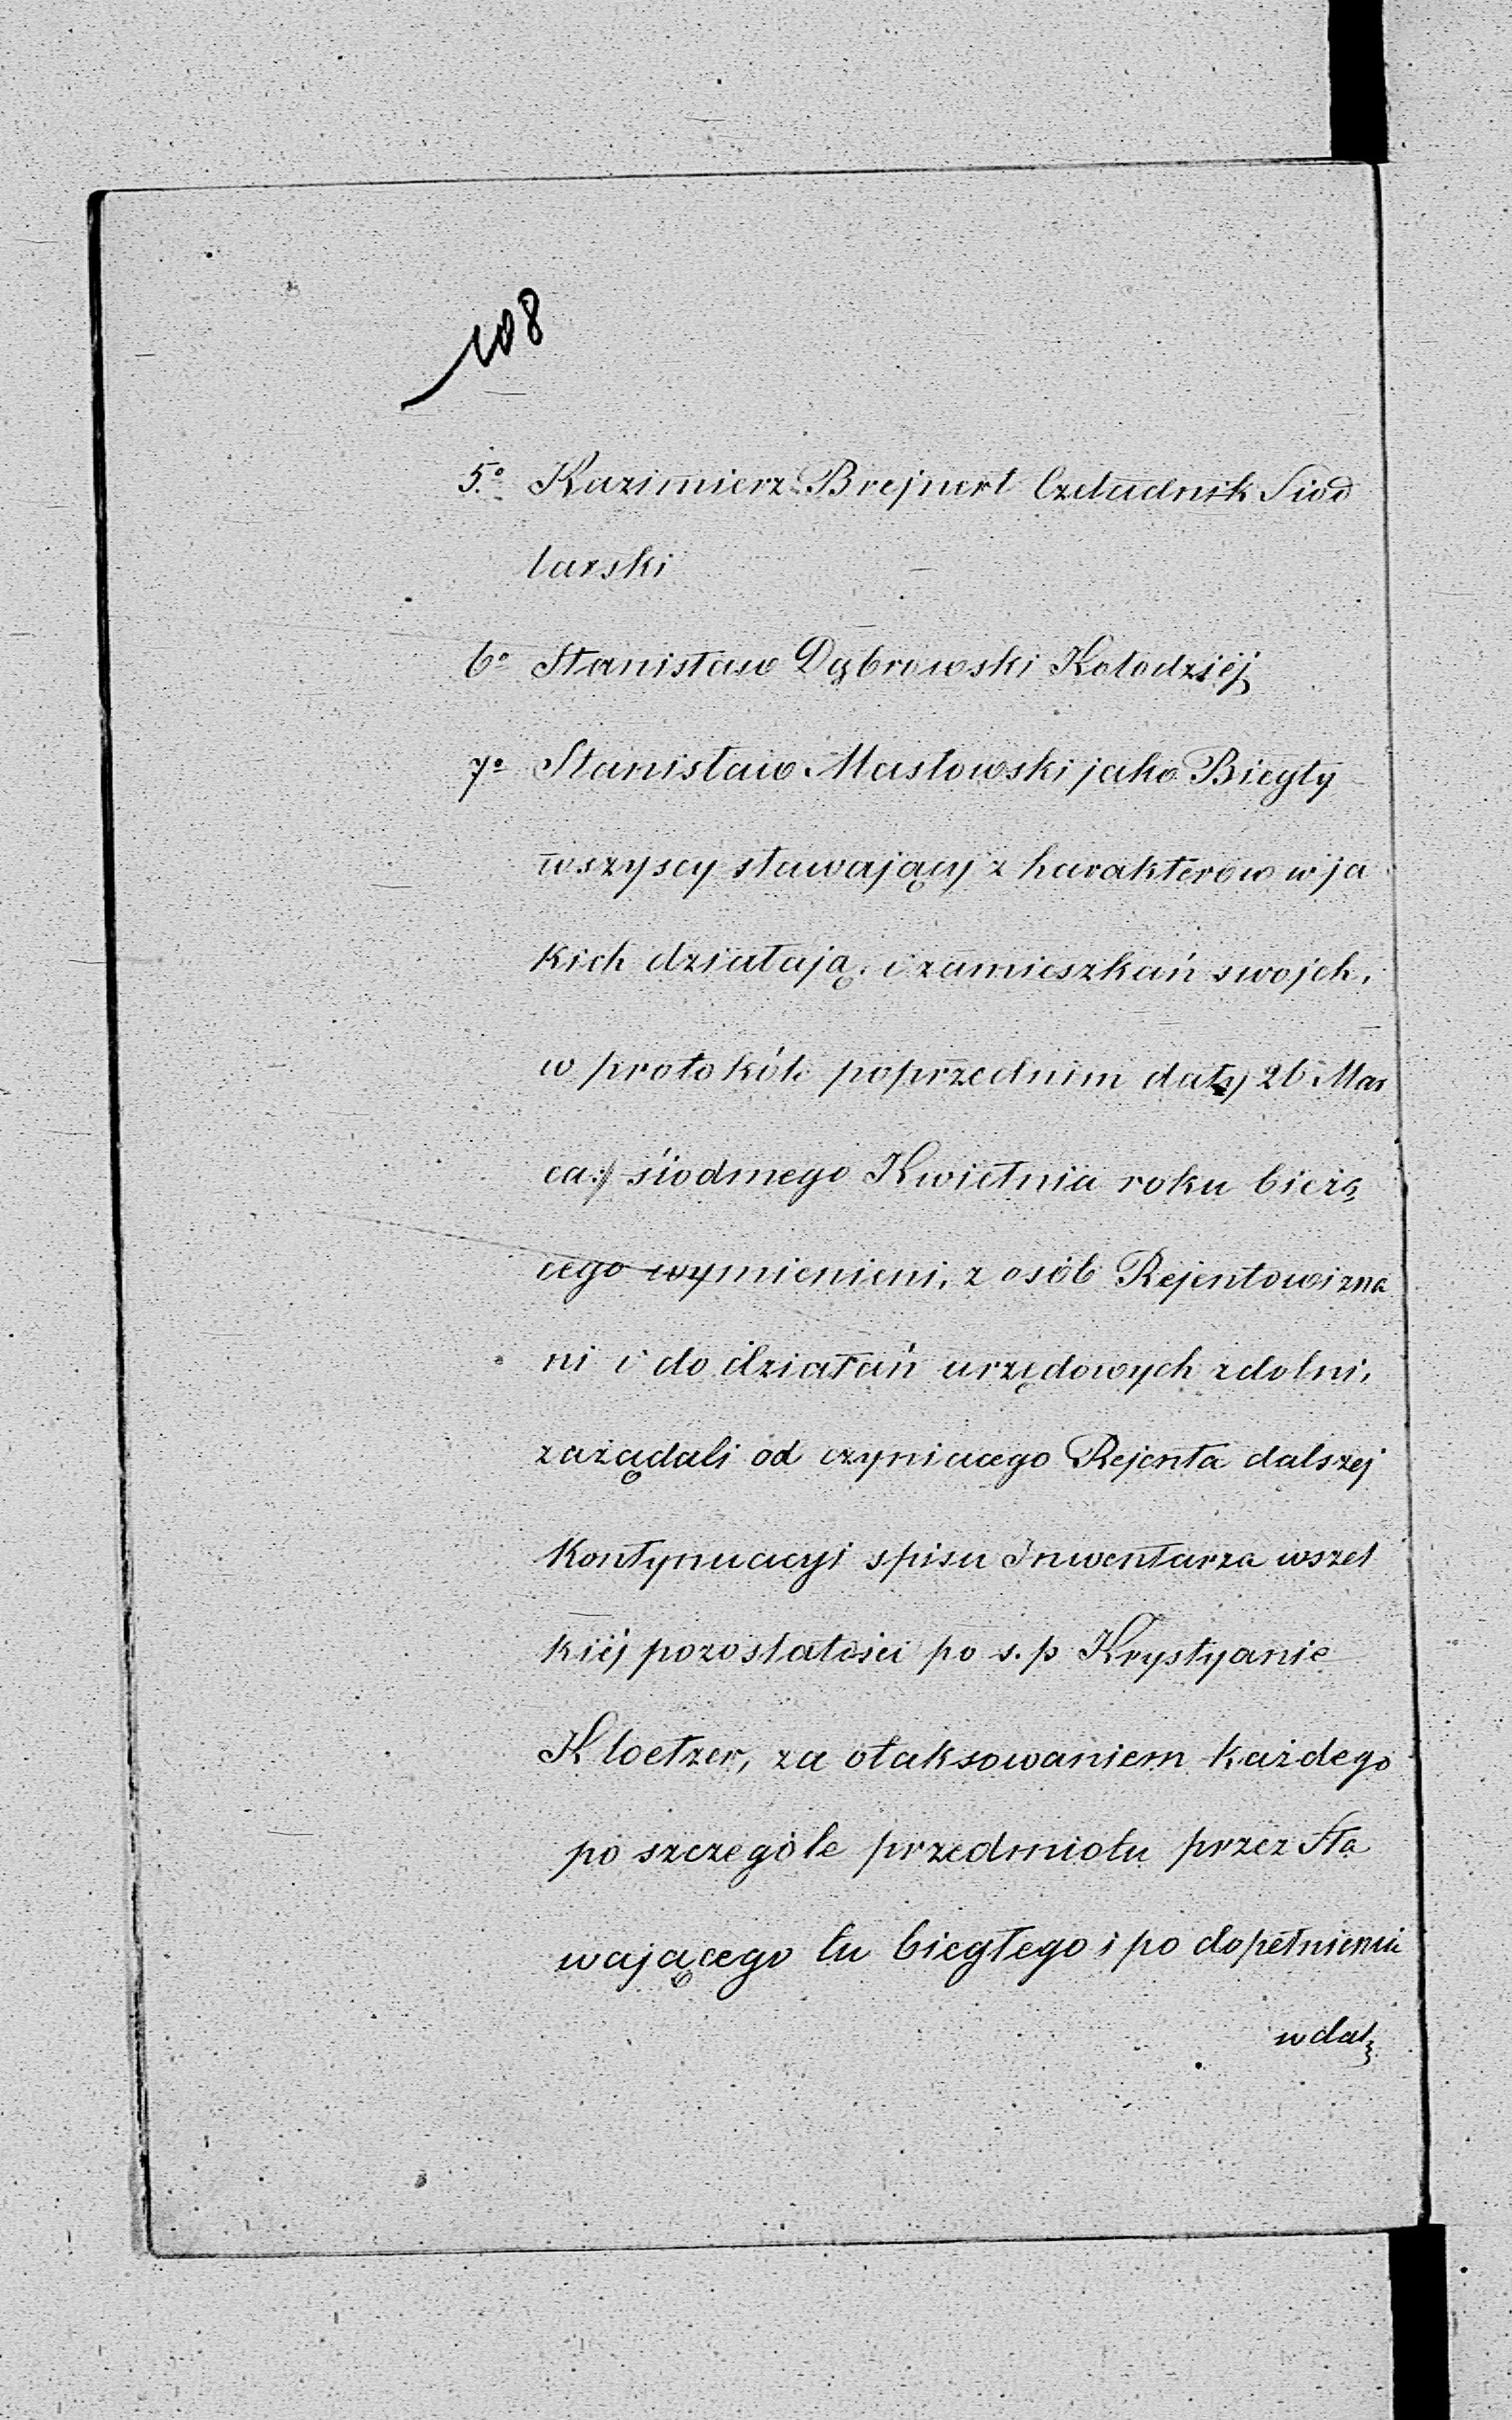 108
5º Kazimierz Brejnert Czeladnik Siod
larski
6º Stanisław Dąbrowski Kołodziéj
7º Stanisław Masłowski jako Biegły
wszyscy stawający z harakterów w ja
kich działają i zamieszkań swojch,
w protokóle poprzednim daty 26 Mar
ca:/ siodmego Kwietnia roku bieżą
cego wymienieni, z osób Rejentowi zna
ni i do działań urzędowych zdolni,
zażądali od czyniacego Rejenta dalszej
Kontynuacyi spisu Inwentarza wszel
kiéj pozostałości po s.p Krystyanie
Kloetzer, za otaksowaniem każdego
po szczególe przedmiotu przez Sta
wającego tu biegłego i po dopełnieniu
w dal